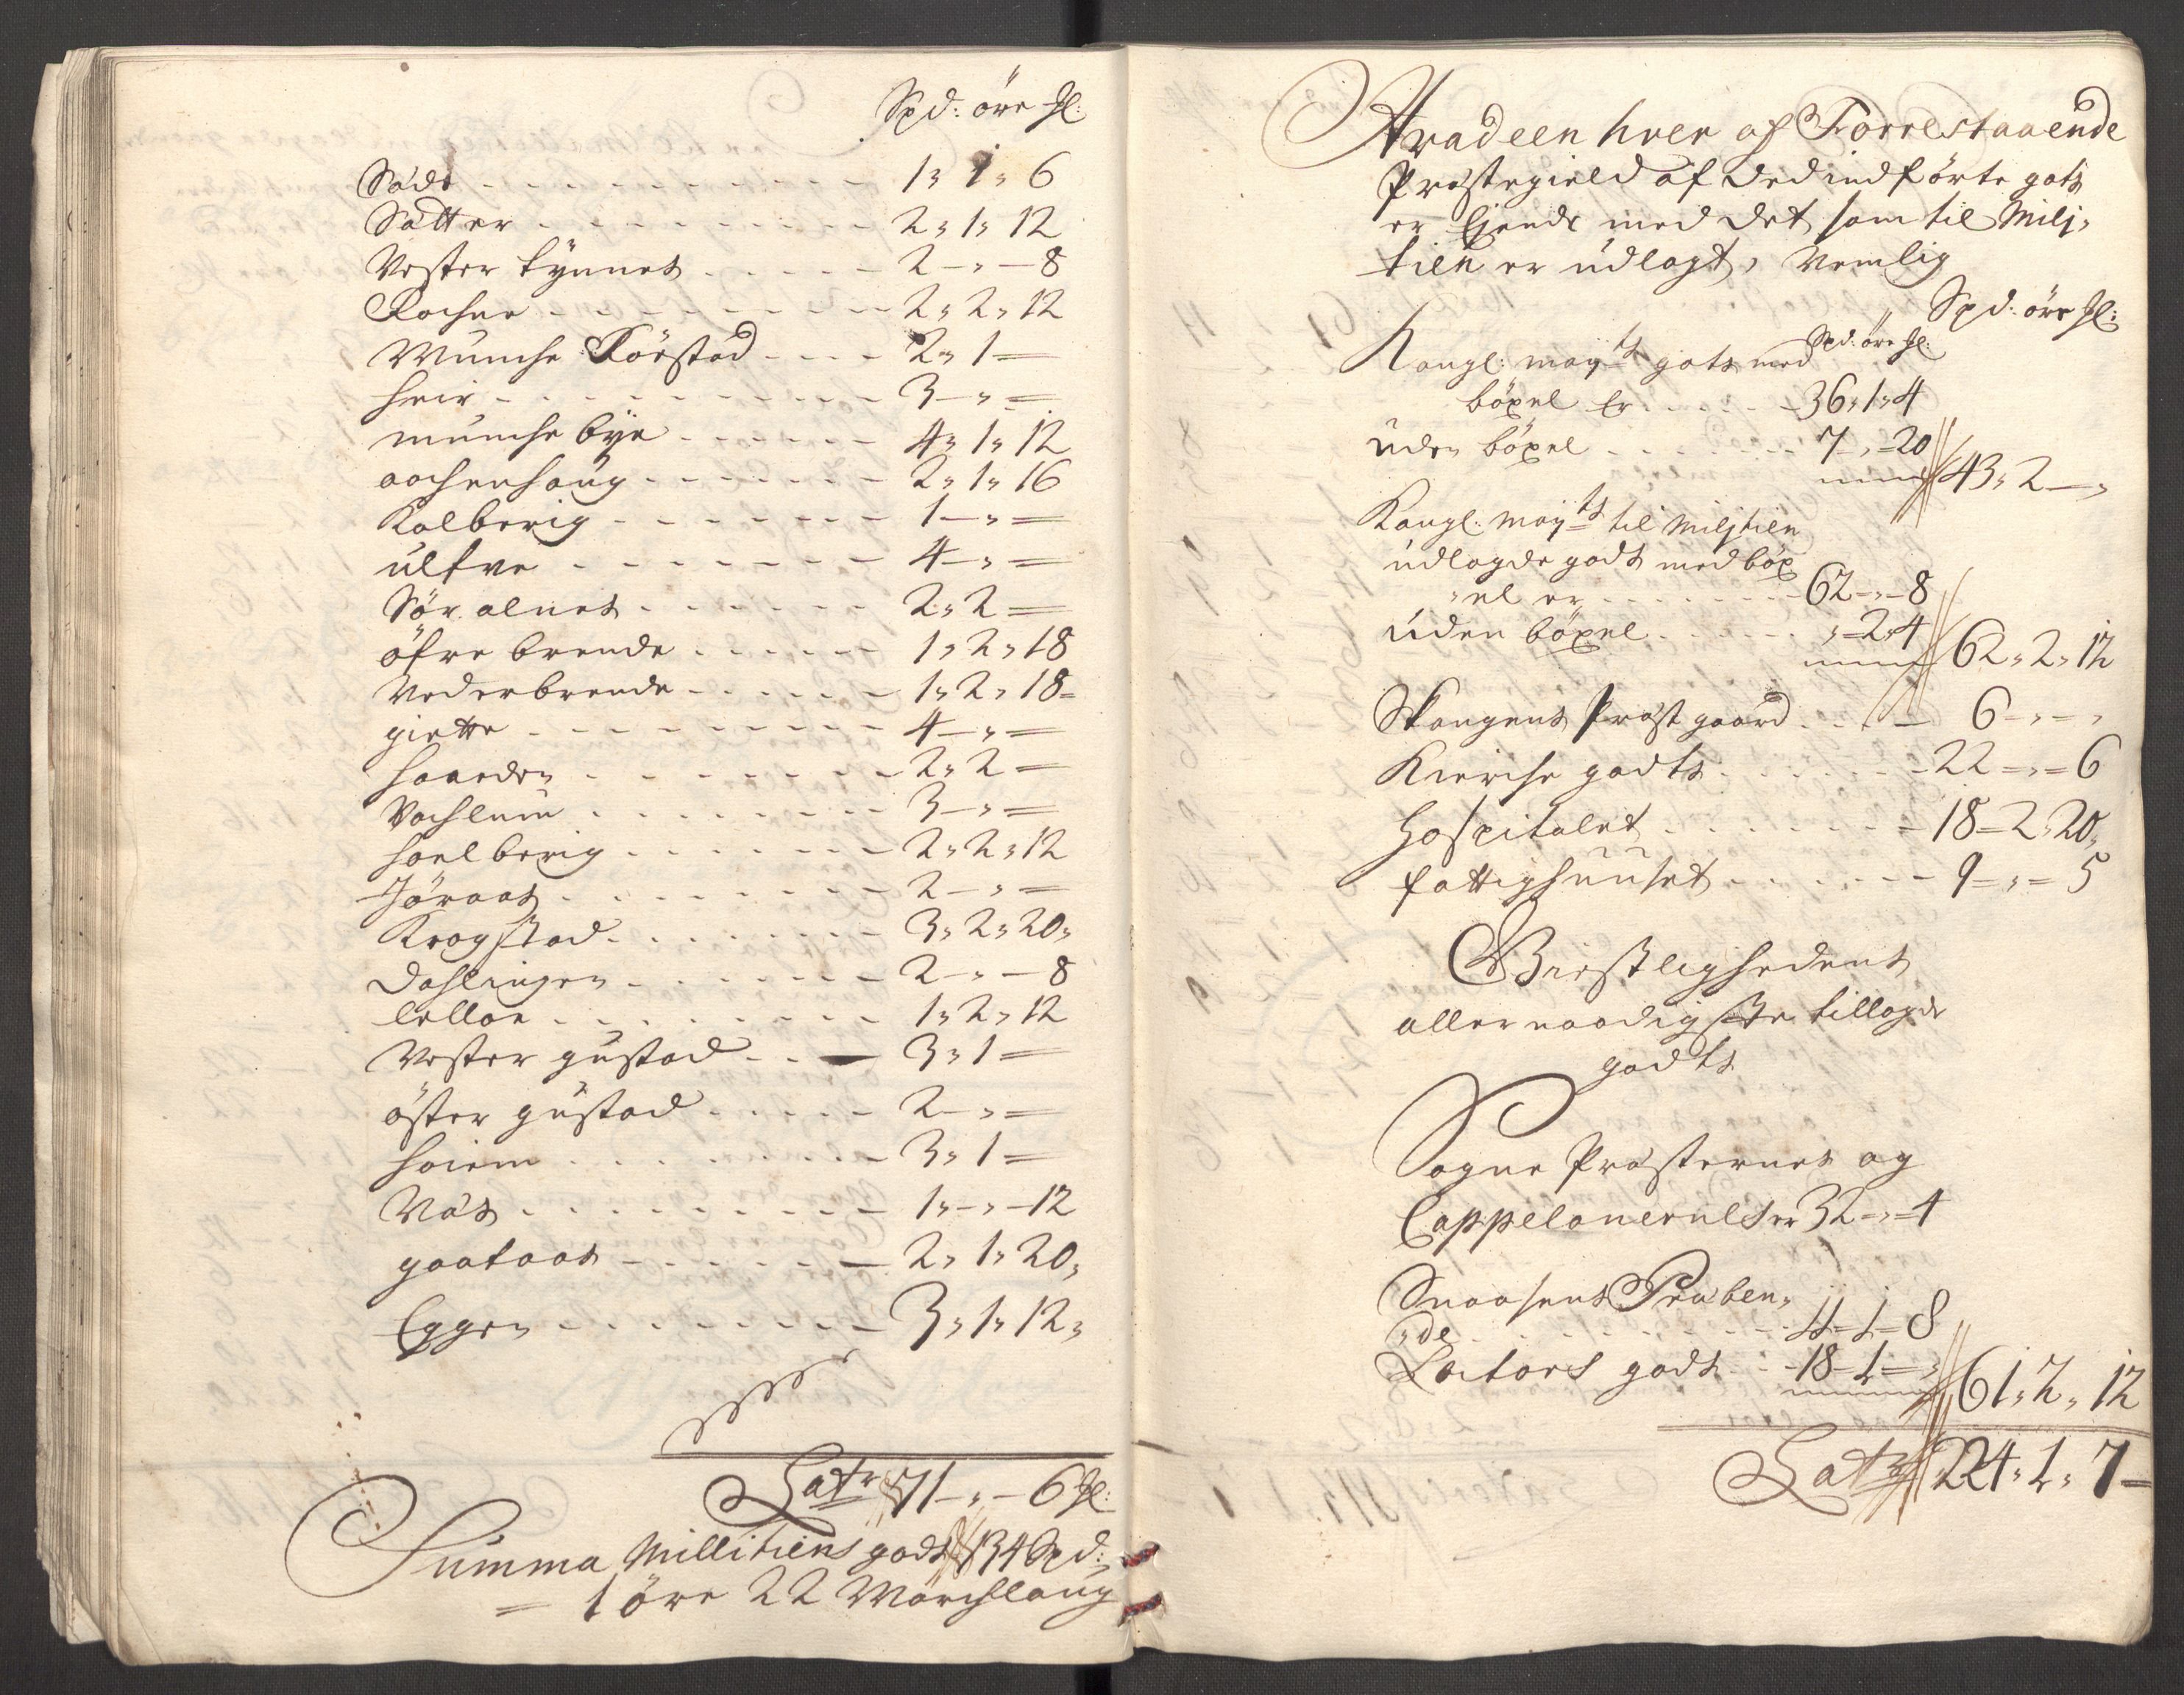 Spd: öre Ml:
Sæde - - - - - - - - - - 1 „ 1 „ 6
Sætter - - - - - - - - - 2 „ 1 „ 12
Vester Tynnes - - - - - 2 – „ – 8
Rochne - - - - - - - - - 2 „ 2 „ 12
Munche Rörstad - - - - 2 „ 1 =
heir - - - - - - - - - - 3 – „ =
munche bye - - - - - - 4 „ 1 „ 12
aachenhaug - - - - - - 2 „ 1 „ 16
Kalberig - - - - - - - 1 – „ =
ulfve - - - - - - - - 4 – „ =
Sör alnes - - - - - - 2 „ 2 =
öfre brende - - - - - 1 „ 2 „ 18
Nederbrende - - - - - 1 „ 2 „ 18 =
giette - - - - - - - - 4 – „ =
haarden - - - - - - - 2 „ 2 =
Vachlem - - - - - - - 3 – „ =
hoelberig - - - - - - 2 „ 2 „ 12
Jöraas - - - - - - - - 2 – „ =
Krogstad - - - - - - - 3 „ 2 „ 20 „
Dahlingen - - - - - - 2 – „ – 8
lelloe - - - - - - - - 1 „ 2 „ 12
Vester gustad - - — 3 „ 1 =
öster gustad - - - - - 2 – „ =
hoiem - - - - - - - - 3 „ 1 =
Næs - - - - - - - - - 1 „ – „ – 12
gaataas - - - - - - — 2 „ 1 „ 20 „
Eggen - - - - - - - - 3 „ 1 „ 12 „
Lat: 71 – „ – 6 Ml:
Summa Millitiens gods 134 Spd:
= 1 öre 22 Marchlaug
Hvad een hver af Forrestaaende
Præstegield af Ded indförte gots
er Eiende med det som til Mili„
tien er udlagt, Nemlig
Spd: öre Ml:
Spd: öre Ml:
Kongl: mayts gots med
böxel Er - - - - 36 „ 1 „ 4
uden böxel - - - - - 7 – „ – 20 43 „ 2 – „
Kongl: mayts til Miljtien
udlagde gods med böx
„el er - - - - - - - 62 – „ – 8
uden böxel - - - - - „ – 2 „ 4 62 „ 2 „ 12
Stangens Præst gaard - - - 6 – „ – „
Kierche godts - - - - - - 22 = „ = 6
Hospitalet - - - - - - - 18 – 2 „ 20 „
fattighuuset - - - - - - 9 = „ = 5
Gieistlighedens
allernaadigste tillagde
godts
Sogne Præsternes og
Cappelanernes er 32 – „ – 4
Snaasens Præben„
„de - - - - - - - - - 11 – 1 – 8
Lectors gods - - 18 – 1 – „ 61 „ 2 „ 12
Lat: 224 „ 1 „ 7 –